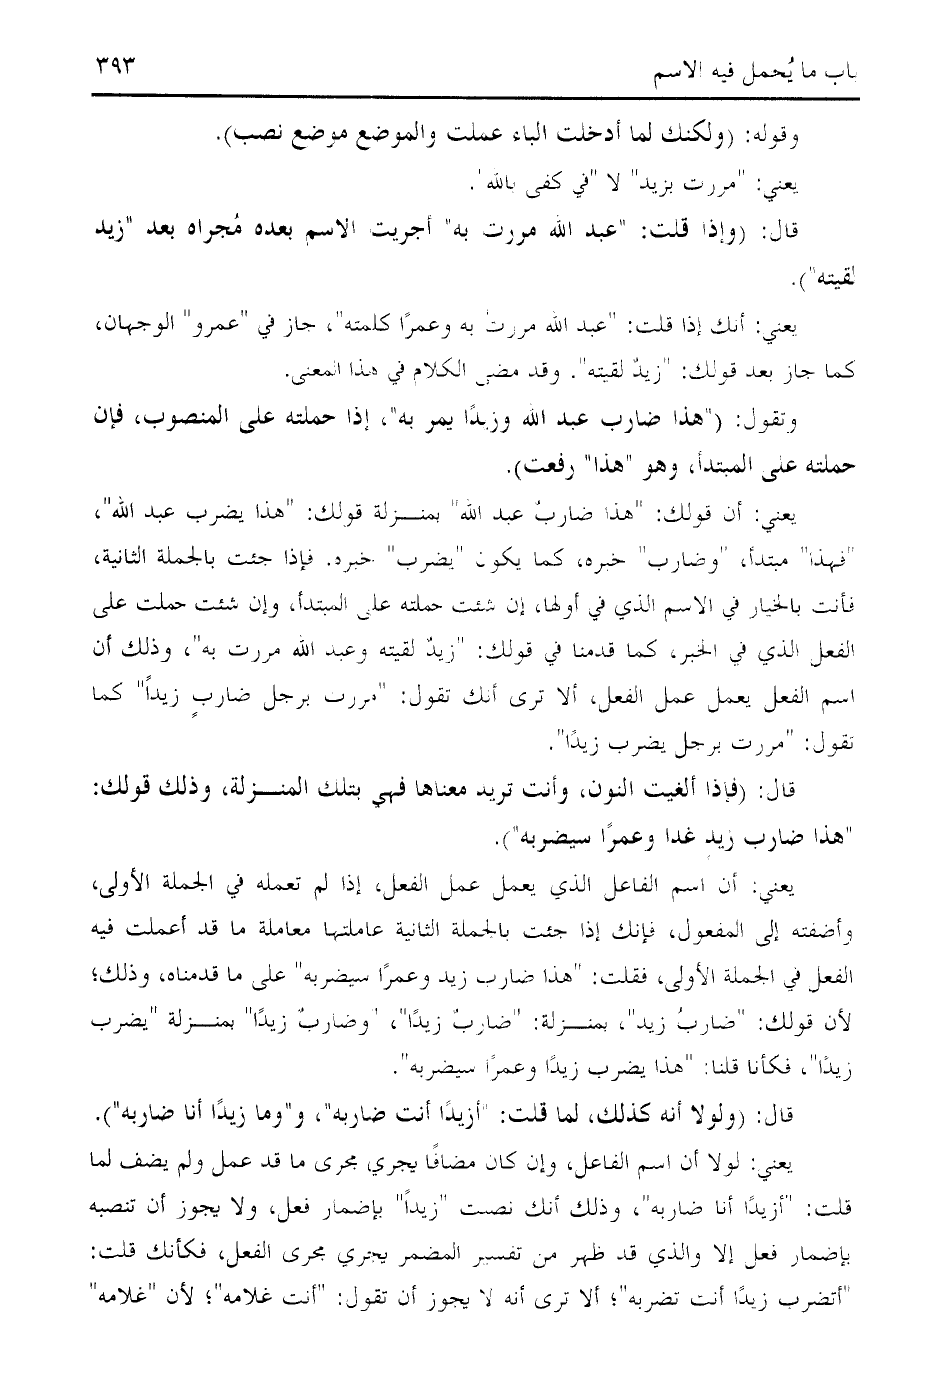 باب ما يُحمل فيه الاسم
٣٩٣
وقوله: (ولكنك لما أدخلت الباء عملت والموضع موضع نصب).
يعني: "مررت بزيد" لا "في كفى بالله".
قال: (وإذا قلت: "عبد الله مررت به" أجريت الاسم بعده مُجراه بعد "زيد
لقيته").
يعني: أنك إذا قلت: "عبد الله مررت به وعمرًا كلمته"، جاز في "عمرو" الوجهان،
كما جاز بعد قولك: "زيدٌ لقيته". وقد مضى الكلام في هذا المعنى.
وتقول: ("هذا ضارب عبد الله وزيدًا يمر به"، إذا حملته على المنصوب، فإن
حملته على المبتدأ، وهو "هذا" رفعت).
يعني: أن قولك: "هذا ضاربٌ عبد الله" بمنـزلة قولك: "هذا يضرب عبد الله"،
"فهذا" مبتدأ، "وضارب" خبره، كما يكون "يضرب" خبره. فإذا جئت بالجملة الثانية،
فأنت بالخيار في الاسم الذي في أولها، إن شئت حملته على المبتدأ، وإن شئت حملت على
الفعل الذي في الخبر، كما قدمنا في قولك: "زيدٌ لقيته وعبد الله مررت به"، وذلك أن
اسم الفعل يعمل عمل الفعل، ألا ترى أنك تقول: "مررت برجل ضاربٍ زيداً" كما
تقول: "مررت برجل يضرب زيدًا".
قال: (فإذا ألغيت النون، وأنت تريد معناها فهي بتلك المنـزلة، وذلك قولك:
"هذا ضارب زيد غدا وعمرًا سيضربه").
يعني: أن اسم الفاعل الذي يعمل عمل الفعل، إذا لم تعمله في الجملة الأولى،
وأضفته إلى المفعول، فإنك إذا جئت بالجملة الثانية عاملتها معاملة ما قد أعملت فيه
الفعل في الجملة الأولى، فقلت: "هذا ضارب زيد وعمرًا سيضربه" على ما قدمناه، وذلك؛
لأن قولك: "ضاربُ زيد"، بمنـزلة: "ضاربٌ زيدًا"، "وضاربٌ زيدًا" بمنـزلة "يضرب
زيدًا"، فكأنا قلنا: "هذا يضرب زيدًا وعمرًا سيضربه".
قال: (ولولا أنه كذلك، لما قلت: "أزيدًا أنت ضاربه"، و"وما زيدًا أنا ضاربه").
يعني: لولا أن اسم الفاعل، وإن كان مضافًا يجري مجرى ما قد عمل ولم يضف لما
قلت: "أزيدًا أنا ضاربه"، وذلك أنك نصبت "زيداً" بإضمار فعل، ولا يجوز أن تنصبه
بإضمار فعل إلا والذي قد ظهر من تفسير المضمر يجري مجرى الفعل، فكأنك قلت:
"أتضرب زيدًا أنت تضربه"؛ ألا ترى أنه لا يجوز أن تقول: "أنت غلامه"؛ لأن "غلامه"